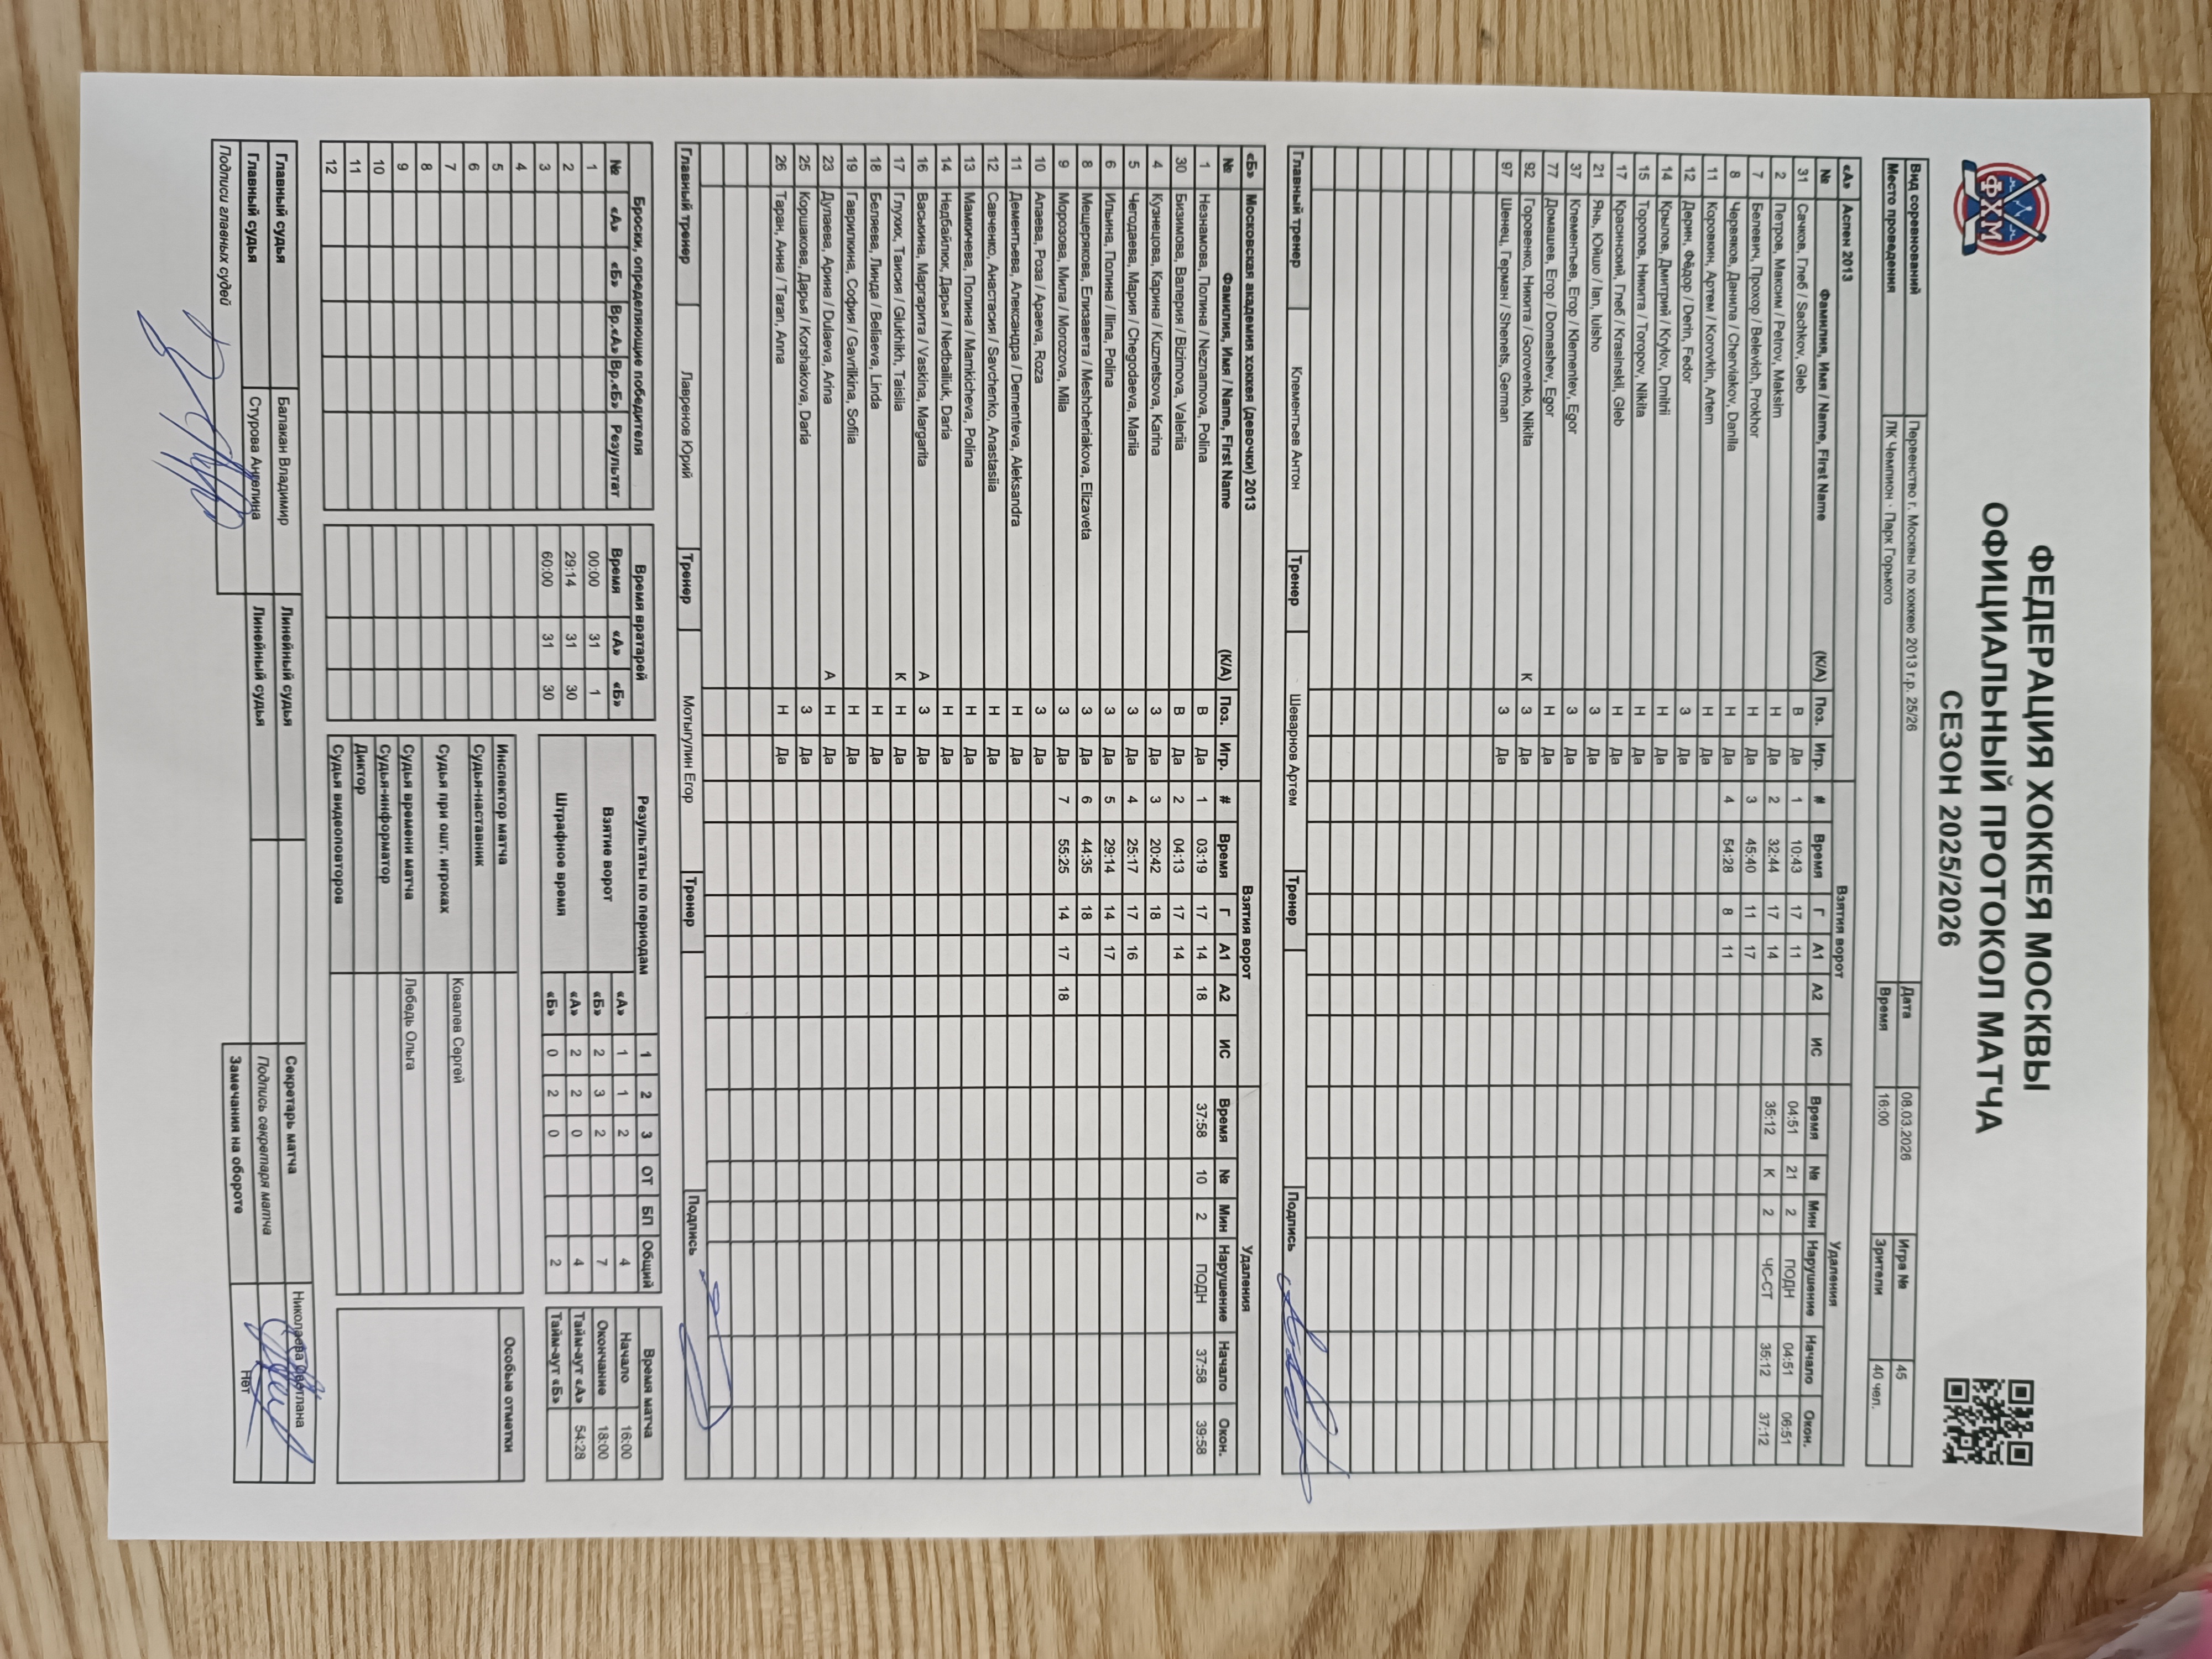 ФХМ
ФЕДЕРАЦИЯ ХОККЕЯ МОСКВЫ
ОФИЦИАЛЬНЫЙ ПРОТОКОЛ МАТЧА
СЕЗОН 2025/2026
Вид соревнований Первенство г. Москвы по хоккею 2013 г.р. 25/26 Дата 08.03.2026 Игра № 45
Место проведения ЛК Чемпион · Парк Горького Время 16:00 Зрители 40 чел.
«А» Аспен 2013 Взятия ворот Удаления
№ Фамилия, Имя / Name, First Name (К/А) Поз. Игр. # Время Г А1 А2 ИС Время № Мин Нарушение Начало Окон.
31 Сачков, Глеб / Sachkov, Gleb В Да 1 10:43 17 11 04:51 21 2 ПОДН 04:51 06:51
2 Петров, Максим / Petrov, Maksim Н Да 2 32:44 17 14 35:12 К 2 ЧС-СТ 35:12 37:12
7 Белевич, Прохор / Belevich, Prokhor Н Да 3 45:40 11 17
8 Червяков, Данила / Cherviakov, Danila Н Да 4 54:28 8 11
11 Коровкин, Артем / Korovkin, Artem Н Да
12 Дерин, Фёдор / Derin, Fedor З Да
14 Крылов, Дмитрий / Krylov, Dmitrii Н Да
15 Торопов, Никита / Toropov, Nikita Н Да
17 Красинский, Глеб / Krasinskii, Gleb Н Да
21 Янь, Юйшо / Ian, Iuisho З Да
37 Клементьев, Егор / Klementev, Egor З Да
77 Домашев, Егор / Domashev, Egor Н Да
92 Горовенко, Никита / Gorovenko, Nikita К З Да
97 Шенец, Герман / Shenets, German З Да
Главный тренер Клементьев Антон Тренер Шеварнов Артем Тренер Подпись
«Б» Московская академия хоккея (девочки) 2013 Взятия ворот Удаления
№ Фамилия, Имя / Name, First Name (К/А) Поз. Игр. # Время Г А1 А2 ИС Время № Мин Нарушение Начало Окон.
1 Незнамова, Полина / Neznamova, Polina В Да 1 03:19 17 14 18 37:58 10 2 ПОДН 37:58 39:58
30 Бизимова, Валерия / Bizimova, Valeriia В Да 2 04:13 17 14
4 Кузнецова, Карина / Kuznetsova, Karina З Да 3 20:42 18
5 Чегодаева, Мария / Chegodaeva, Mariia З Да 4 25:17 17 16
6 Ильина, Полина / Ilina, Polina З Да 5 29:14 14 17
8 Мещерякова, Елизавета / Meshcheriakova, Elizaveta З Да 6 44:35 18
9 Морозова, Мила / Morozova, Mila З Да 7 55:25 14 17 18
10 Апаева, Роза / Apaeva, Roza З Да
11 Дементьева, Александра / Dementeva, Aleksandra Н Да
12 Савченко, Анастасия / Savchenko, Anastasiia Н Да
13 Мамкичева, Полина / Mamkicheva, Polina Н Да
14 Недбайлюк, Дарья / Nedbailiuk, Daria Н Да
16 Васькина, Маргарита / Vaskina, Margarita А З Да
17 Глухих, Таисия / Glukhikh, Taisiia К Н Да
18 Беляева, Линда / Beliaeva, Linda Н Да
19 Гаврилкина, София / Gavrilkina, Sofiia Н Да
23 Дулаева, Арина / Dulaeva, Arina А Н Да
25 Коршакова, Дарья / Korshakova, Daria З Да
26 Таран, Анна / Taran, Anna Н Да
Главный тренер Лавренов Юрий Тренер Мотыгулин Егор Тренер Подпись
Броски, определяющие победителя
№ «А» «Б» Вр.«А» Вр.«Б» Результат
1
2
3
4
5
6
7
8
9
10
11
12
Время вратарей
Время «А» «Б»
00:00 31 1
29:14 31 30
60:00 31 30
Результаты по периодам 1 2 3 ОТ БП Общий
Взятие ворот «А» 1 1 2 4
«Б» 2 3 2 7
Штрафное время «А» 2 2 0 4
«Б» 0 2 0 2
Время матча
Начало 16:00
Окончание 18:00
Тайм-аут «А» 54:28
Тайм-аут «Б»
Инспектор матча
Судья-наставник
Судья при ошт. игроках Ковалев Сергей
Судья времени матча Лебедь Ольга
Судья-информатор
Диктор
Судья видеоповторов
Особые отметки
Главный судья Балакан Владимир Линейный судья Секретарь матча Николаева Светлана
Главный судья Стурова Ангелина Линейный судья Подпись секретаря матча
Подписи главных судей Замечания на обороте Нет